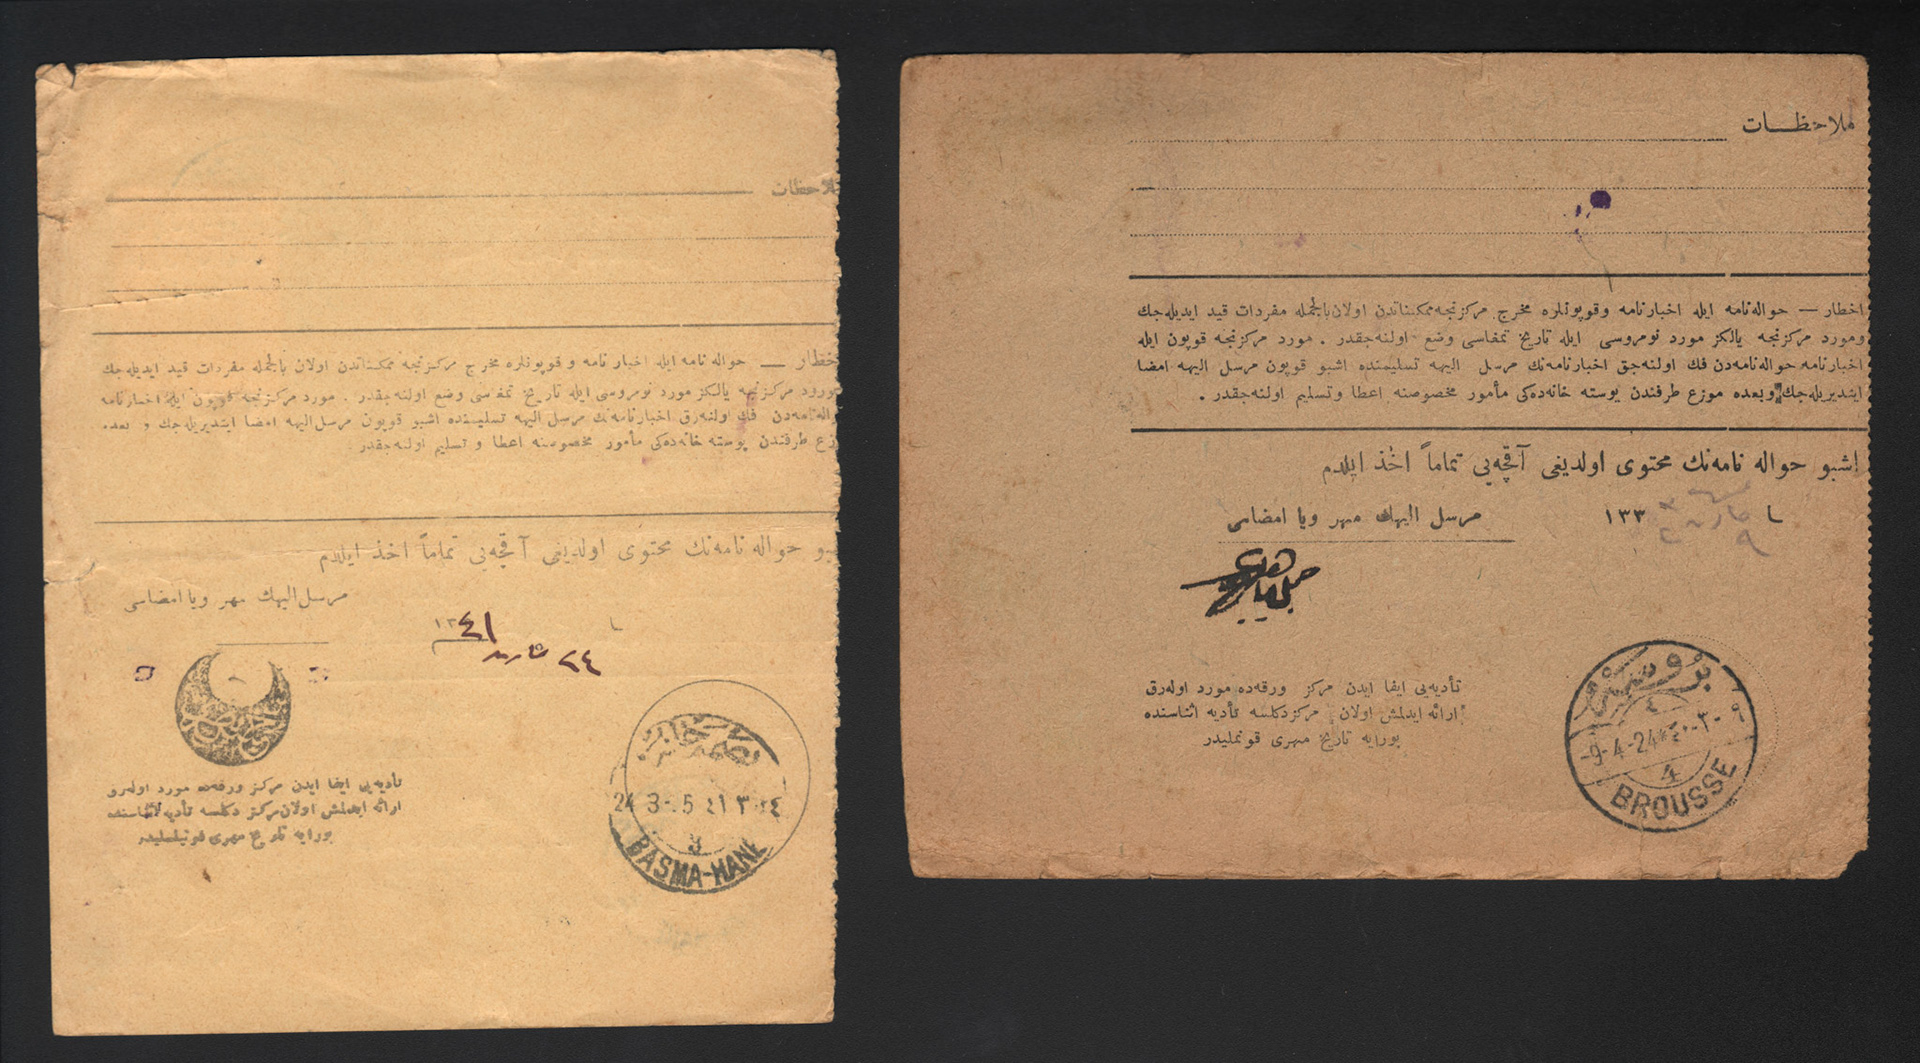 ملاحظات
اخطار — حواله نامه ایله اخبار نامه و قوپونلره مخرج مركزنجه ممكناتدن اولان بالجمله مفردات قید ایدیله‌جك
ومورود مركزنجه یالكز مورد نومروسی ایله تاریخ تمغاسی وضع اولنه‌جقدر . مورد مركزنجه قوپون ایله اخبارنامه
حواله‌نامه‌دن فك اولنه‌رق اخبارنامه‌نك مرسل الیهه تسلیمنده اشبو قوپون مرسل‌الیهه امضا ایتدیریله‌جك و بعده
موزع طرفندن پوسته خانه‌ده‌كی مأمور مخصوصنه اعطا و تسلیم اولنه‌جقدر .
اشبو حواله نامه‌نك محتوی اولدیغی آقچه‌یی تماماً اخذ ایلدم
مرسل الیهك مهر ویا امضاسی
١٣٤١
٢٤ مارت
تأدیه‌یی ایفا ایدن مركز ورقه‌ده مورد اوله‌رق
ارائه ایدلمش اولان مركز دكلسه تأدیه اثناسنده
بورایه تاریخ مهری قونملیدر
بصمه خانه
24 3-.5 ٤١ ٣ ٢٤
3
BASMA-HANE
ملاحظـات
اخطار — حواله‌نامه ایله اخبارنامه وقوپونلره مخرج مركزنجه ممكناتدن اولان بالجمله مفردات قید ایدیله‌جك
ومورد مركزنجه یالكز مورد نومروسی ایله تاریخ تمغاسی وضع اولنه‌جقدر . مورد مركزنجه قوپون ایله
اخبارنامه حواله‌نامه‌دن فك اولنه‌جق اخبارنامه‌نك مرسل الیهه تسلیمنده اشبو قوپون مرسل الیهه امضا
ایتدیریله‌جك وبعده موزع طرفندن پوسته خانه‌ده‌كی مأمور مخصوصنه اعطا وتسلیم اولنه‌جقدر .
اشبو حواله نامه‌نك محتوی اولدیغی آقچه‌یی تماماً اخذ ایلدم
١٣٣
مرسل الیهك مهر ویا امضاسی
تأدیه‌یی ایفا ایدن مركز ورقه‌ده مورد اوله‌رق
ارائه ایدلمش اولان مركز دكلسه تأدیه اثناسنده
بورایه تاریخ مهری قونملیدر
بروسه
٤
9-4-24 ٤٠-٣-٩
4
BROUSSE